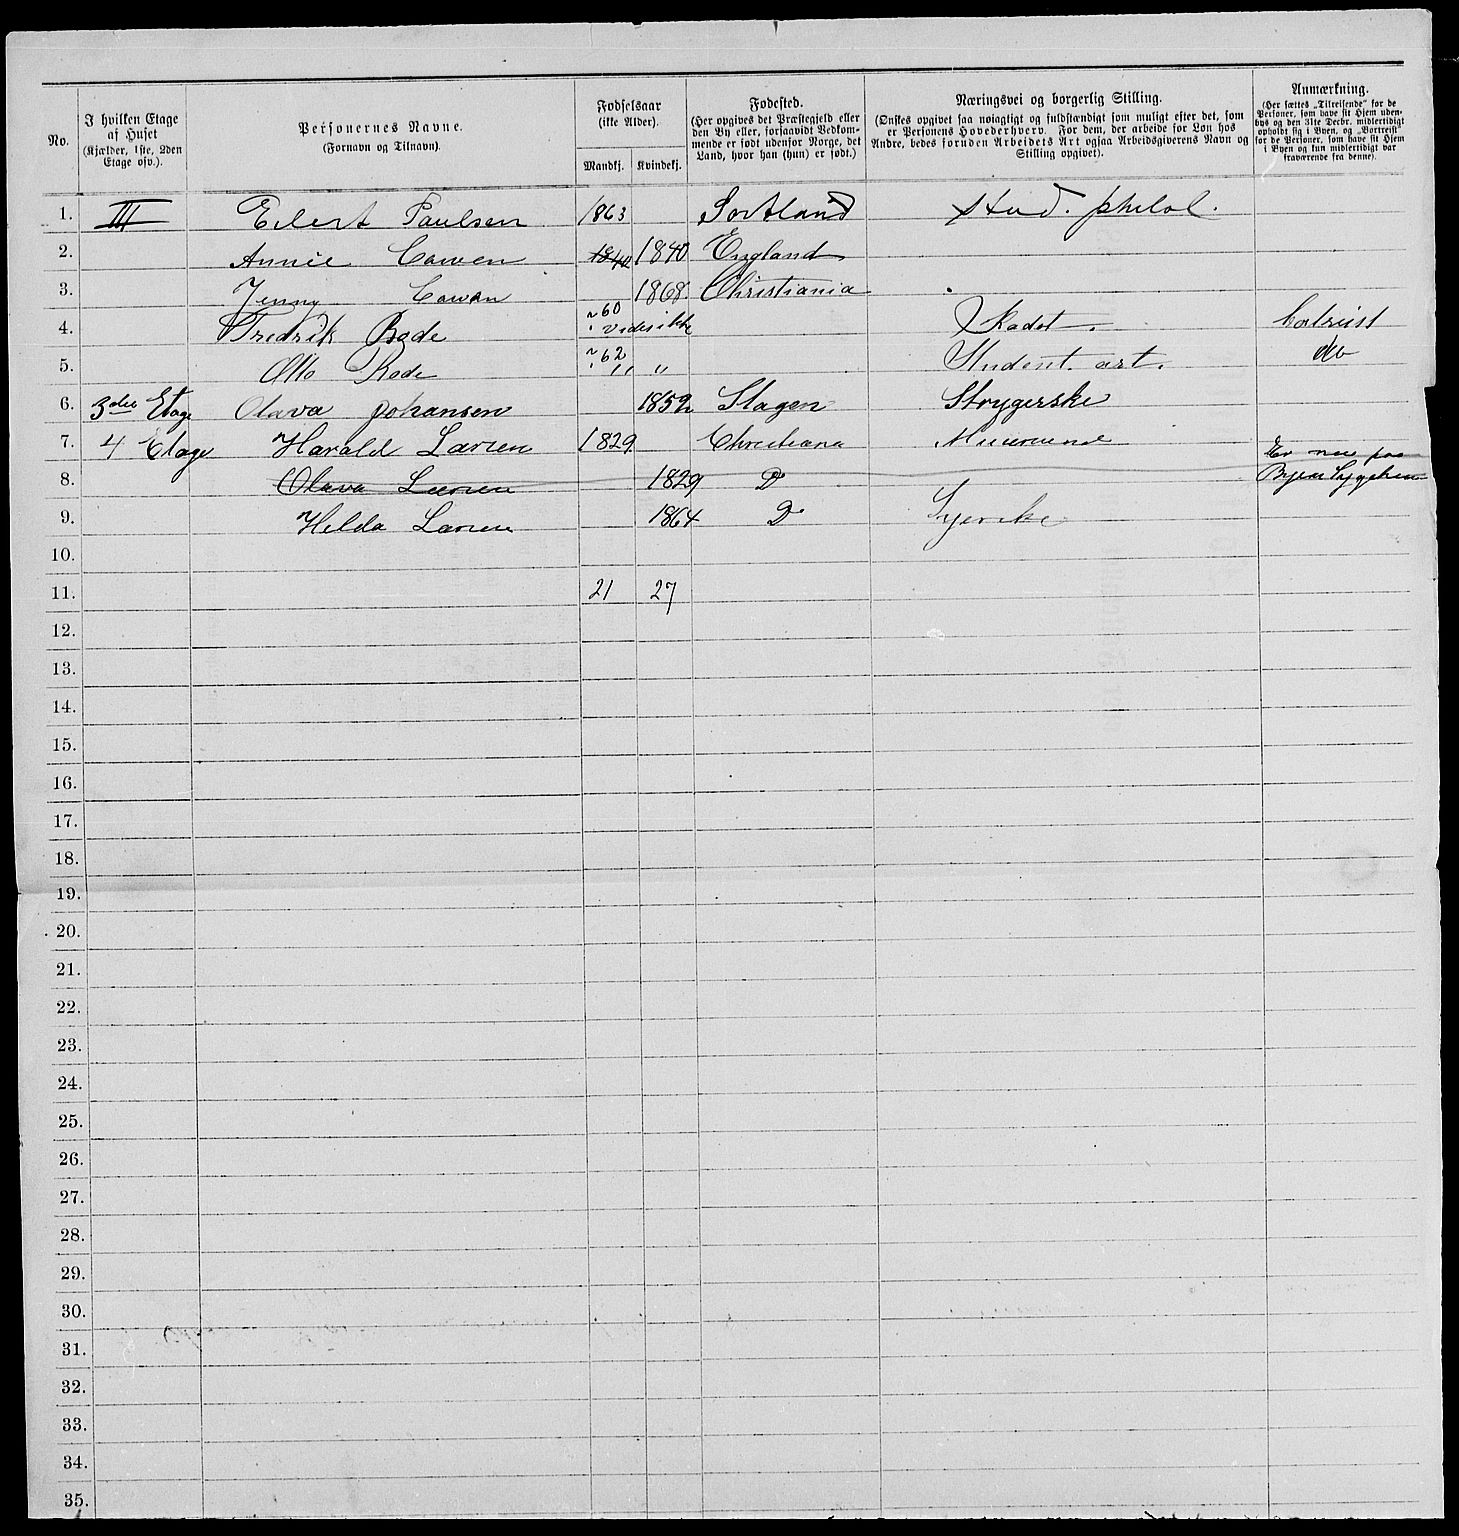 No.
I hvilken Etage
af Huset
(Kjælder, 1ste, 2den
Etage osv.).
Personernes Navne.
(Fornavn og Tilnavn).
Fødselsaar
(ikke Alder).
Mandkj. Kvindekj.
Fødested.
(Her opgives det Præstegjeld eller
den By eller, forsaavidt Vedkom-
mende er født udenfor Norge, det
Land, hvor han (hun) er født.)
Næringsvei og borgerlig Stilling.
(Ønskes opgivet saa nøiagtigt og fuldstændigt som muligt efter det, som
er Personens Hovederhverv. For dem, der arbeide for Løn hos
Andre, bedes foruden Arbeidets Art ogsaa Arbeidsgiverens Navn og
Stilling opgivet).
Anmærkning.
(Her sættes „Tilreisende" for de
Personer, som have sit Hjem uden-
bys og den 31te Decbr. midlertidigt
opholdt sig i Byen, og „Bortreist"
for de Personer, som have sit Hjem
i Byen og kun midlertidigt var
fraværende fra denne).
1. III Eilert Paulsen 1863 Sortland stud. philol.
2. Annie Cowen 1840 1840 England
3. Jenny Cowan 1868 Christiania
4. Fredrik Bode ~60 vides ikke Kadet. bortreist
5. Otto Rode ~62 " " Student. art. do
6. 3die Etage Olava Johansen 1859 Slagen Strygerske
7. 4 Etage Harald Larsen 1829 Christiana
8. Olava Larsen 1829 Do Er nu paa
Byens Sygehus
9. Hilda Larsen 1864 Do Syerske
10.
11. 21 27
12.
13.
14.
15.
16.
17.
18.
19.
20.
21.
22.
23.
24.
25.
26.
27.
28.
29.
30.
31.
32.
33.
34.
35.